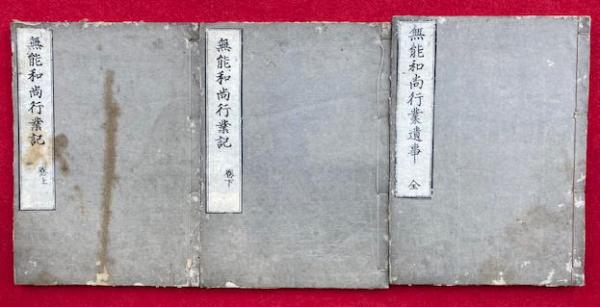 無能和尚行業記 巻上
無能和尚行業記 巻下
無能和尚行業遺事 全